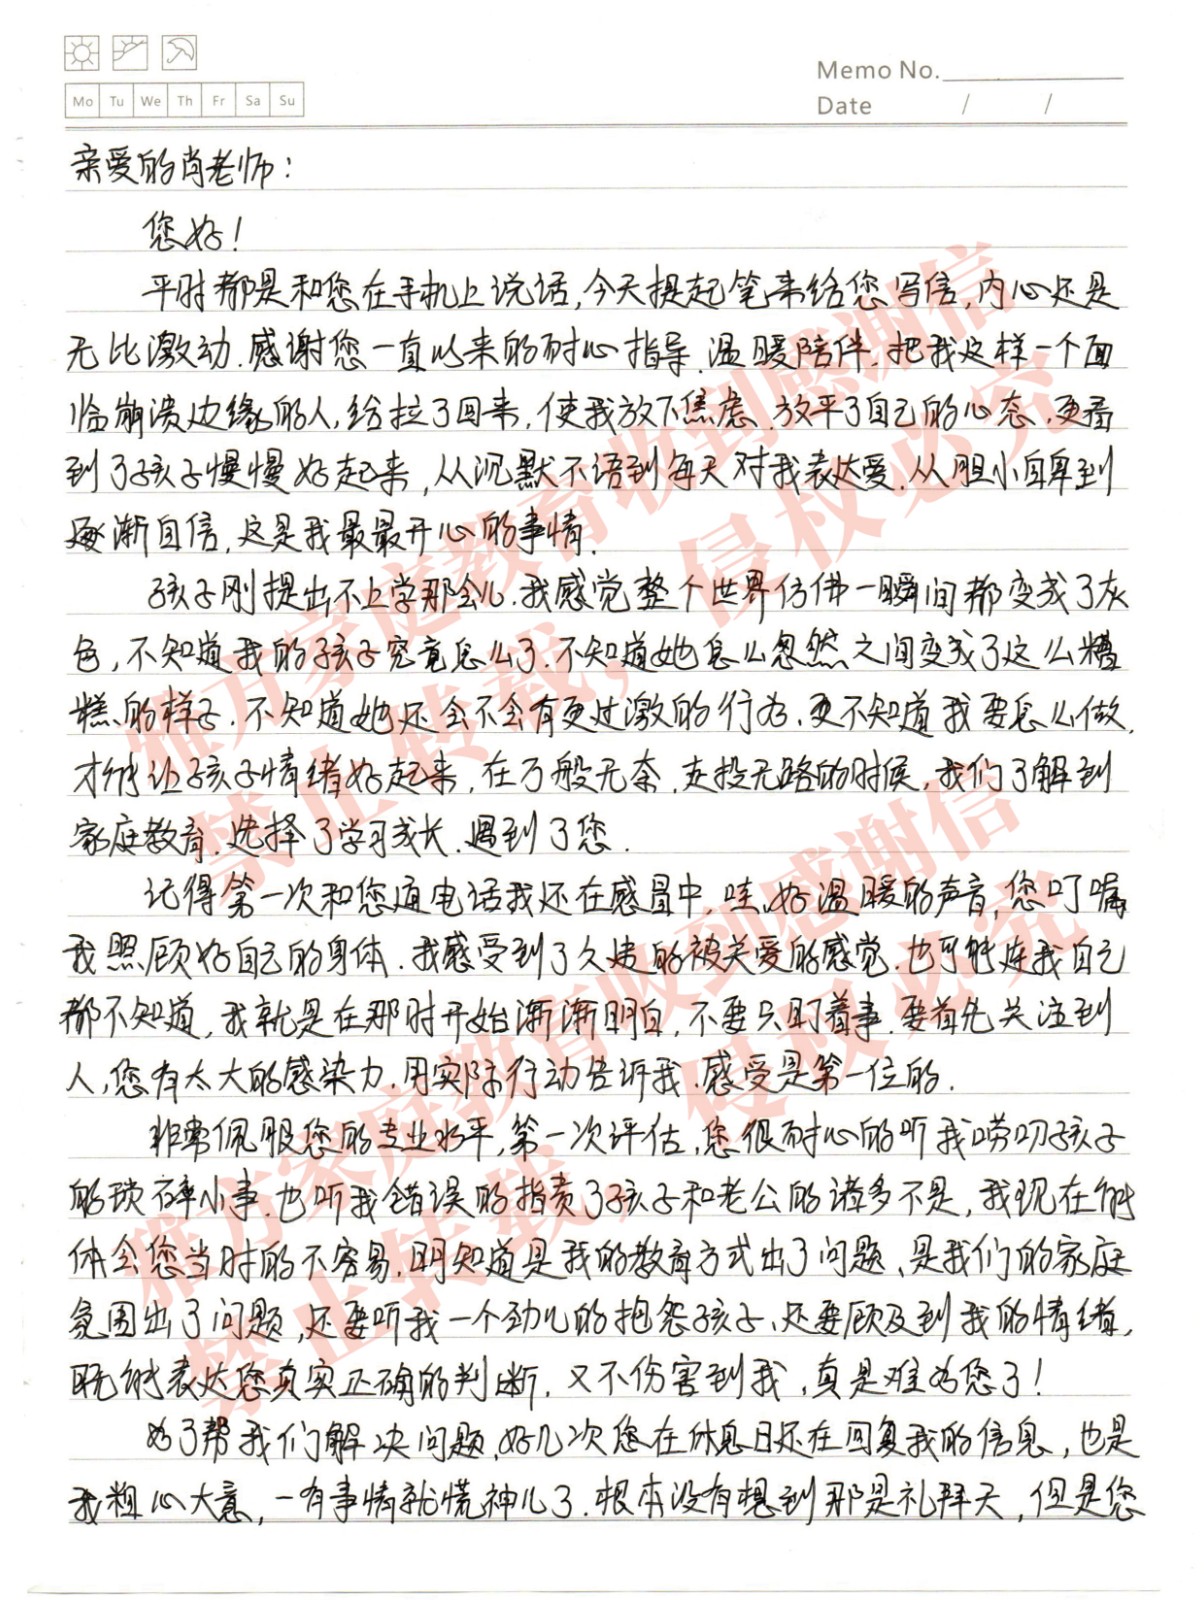 Memo No.
Mo Tu We Th Fr Sa Su
Date / /
亲爱的肖老师:
您好!
平时都是和您在手机上说话,今天提起笔来给您写信,内心还是
无比激动.感谢您一直以来的耐心指导.温暖陪伴.把我这样一个面
临崩溃边缘的人,给拉了回来,使我放下焦虑.放平了自己的心态.更看
到了孩子慢慢好起来,从沉默不语到每天对我表达爱.从胆小自卑到
逐渐自信,这是我最最开心的事情.
孩子刚提出不上学那会儿.我感觉整个世界仿佛一瞬间都变成了灰
色,不知道我的孩子究竟怎么了.不知道她怎么忽然之间变成了这么糟
糕的样子.不知道她还会不会有更过激的行为.更不知道我要怎么做.
才能让孩子情绪好起来,在万般无奈.走投无路的时候,我们了解到
家庭教育.选择了学习成长.遇到了您.
记得第一次和您通电话我还在感冒中,哇,好温暖的声音,您叮嘱
我照顾好自己的身体.我感受到了久违的被关爱的感觉.也可能连我自己
都不知道,我就是在那时开始渐渐明白,不要只盯着事.要首先关注到
人,您有太大的感染力.用实际行动告诉我.感受是第一位的.
非常佩服您的专业水平,第一次评估,您很耐心的听我唠叨孩子
的琐碎小事.也听我错误的指责了孩子和老公的诸多不是,我现在能
体会您当时的不容易.明知道是我的教育方式出了问题、是我们的家庭
氛围出了问题,还要听我一个劲儿的抱怨孩子、还要顾及到我的情绪,
既能表达您真实正确的判断.又不伤害到我,真是难为您了!
为了帮我们解决问题,好几次您在休息日还在回复我的信息,也是
我粗心大意,一有事情就慌神儿了.根本没有想到那是礼拜天,但是您
雅方家庭教育收到感谢信
禁止转载,侵权必究
雅方家庭教育收到感谢信
禁止转载,侵权必究